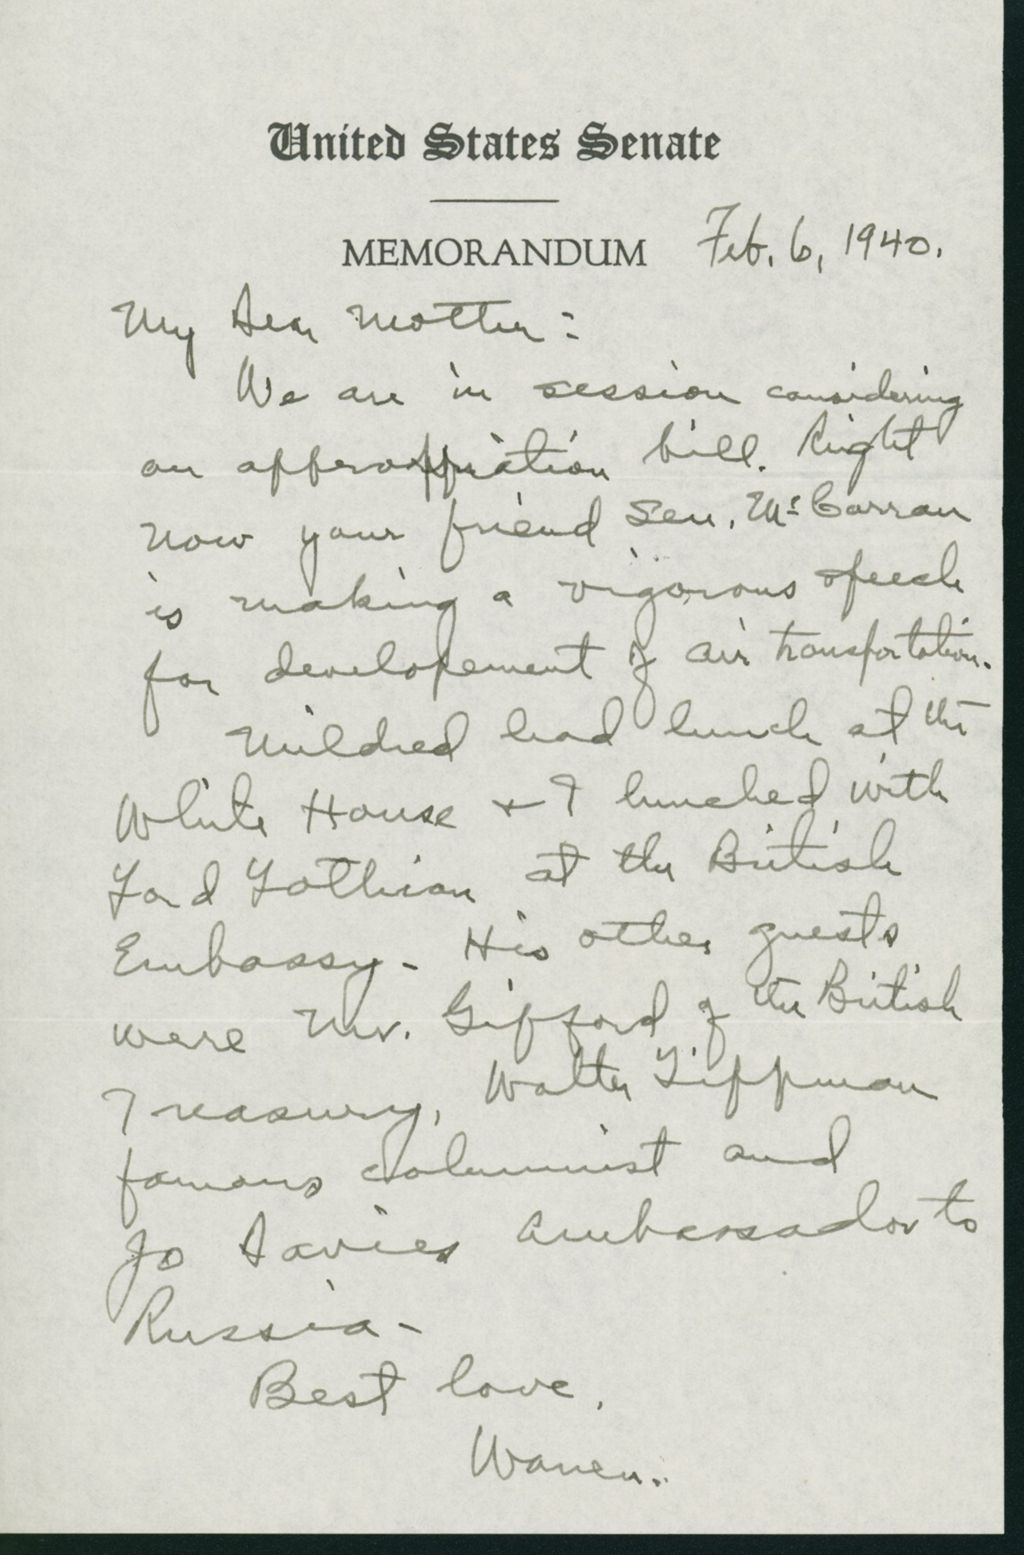 United States Senate
MEMORANDUM Feb. 6, 1940.
My Dear Mother:
We are in session considering
an appropriation bill. Right
now your friend Sen. McCarran
is making a vigorous speech
for developement of air transportation.
Mildred had lunch at the
White House + I lunched with
Lord Lothian at the British
Embassy. His other guests
were Mr. Gifford of the British
Treasury, Walter Lippman
famous columnist and
Jo Davies ambassador to
Russia-
Best love,
Warren.